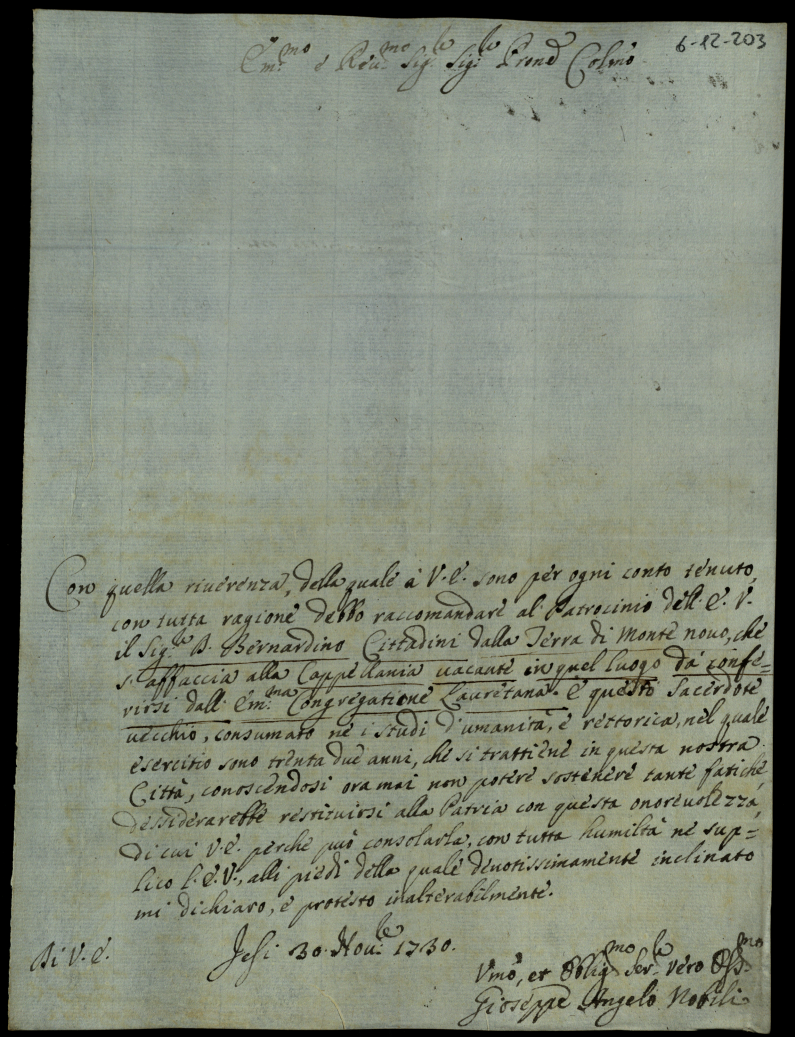 6-12-203
Em.mo e Rev.mo Sig.le Sig.le Prone Colmo
Con quella riverenza, della quale à V.E. sono per ogni conto tenuto,
con tutta ragione debbo raccomandare al Patrocinio dell'E.V.
il Sig.le D. Bernardino Cittadini dalla Terra di Monte novo, che
s'affaccia alla Cappellania vacante in quel luogo da confe=
rirsi dall'Em.ma Congregatione Lauretana. È questo Sacerdote
vecchio, consumato ne i studi d'umanità, e rettorica, nel quale
esercitio sono trenta due anni, che si trattiene in questa nostra
Città, conoscendosi ora mai non potere sostenere tante fatiche,
dessiderarebbe restituirsi alla Patria con questa onorevolezza,
di cui V.E. perche può consolarla, con tutta humiltà ne sup=
lico l'E.V., alli piedi della quale devotissimamente inclinato
mi dichiaro, e protesto inalterabilmente.
Di V.E. Jesi 30. Nov.le 1730.
Vmo, et Obblig.mo Ser.le vero Oss.mo
Gioseppe Angelo Nobili